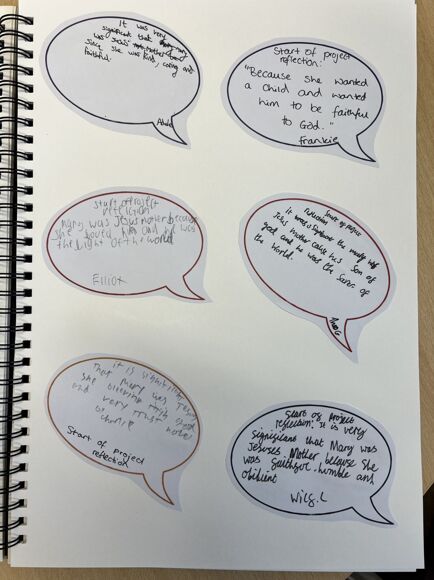 It was very
significant that mary
was Jesus' mother
since she was kind, caring and
faithful.
Start of project
reflection:
"Because she wanted
a child and wanted
him to be faithful
to God."
Frankie
start of project
reflection
Mary was Jesus Mother because
she loved him and he was
the light of the world
Elliot
Start of project
reflection
it was significant the mary was
Jesus mother cause he is Son of
god and he was the Savor of
the World.
it is significant
that Mary was Jesus
she
and very
Start of project
reflection
Start of project
reflection: It is very
significant that Mary was
Jesuses. Mother because she
was faithful, humble and
obidient
Wilf.L